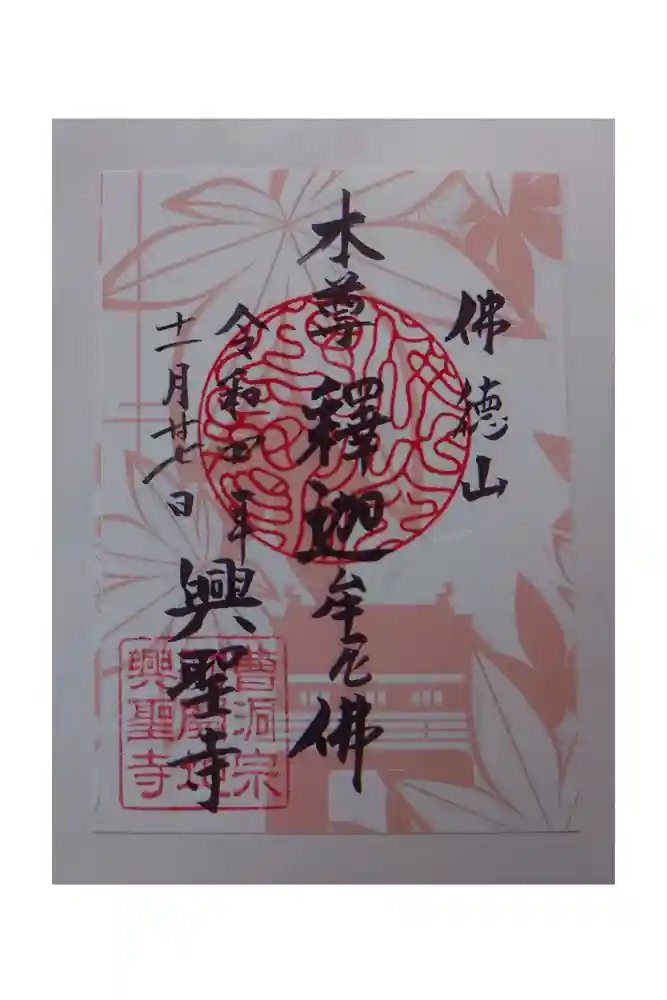 佛徳山
本尊 釋迦牟尼佛
令和四年
十一月廿七日
興聖寺
曹洞宗
興聖寺